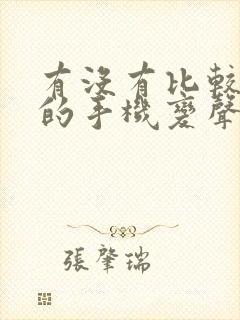 有没有比較
的手機變聲
張肇瑞